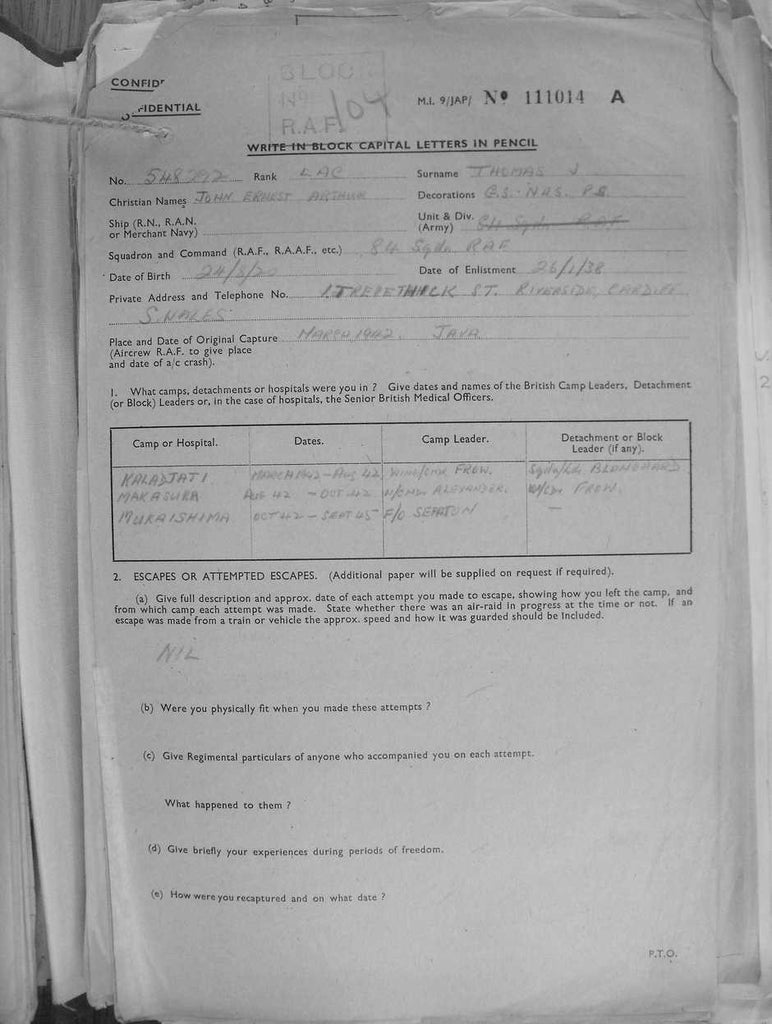 CONFID
FIDENTIAL
BLOC
No 104
R.A.F.
M.I. 9/JAP/ No 111014 A
WRITE IN BLOCK CAPITAL LETTERS IN PENCIL
No. Rank LAC Surname THOMAS J
Christian Names JOHN ERNEST ARTHUR Decorations
Ship (R.N., R.A.N.
or Merchant Navy)
Unit & Div. 84 Sqdn RAF
(Army)
Squadron and Command (R.A.F., R.A.A.F., etc.) 84 Sqdn RAF
Date of Birth Date of Enlistment 26/1/38
Private Address and Telephone No. ST. RIVERSIDE, CARDIFF
S. WALES
Place and Date of Original Capture MARCH 1942. JAVA
(Aircrew R.A.F. to give place
and date of a/c crash).
1. What camps, detachments or hospitals were you in ? Give dates and names of the British Camp Leaders, Detachment
(or Block) Leaders or, in the case of hospitals, the Senior British Medical Officers.
Camp or Hospital. Dates. Camp Leader. Detachment or Block
Leader (if any).
KALADJATI MARCH 1942 - AUG 42 WING/CMR FROW.
MAKASURA AUG 42 - OCT 42 W/CMDR ALEXANDER. W/CDR FROW.
MUKAISHIMA OCT 42 - SEPT 45 F/O —
2. ESCAPES OR ATTEMPTED ESCAPES. (Additional paper will be supplied on request if required).
(a) Give full description and approx. date of each attempt you made to escape, showing how you left the camp, and
from which camp each attempt was made. State whether there was an air-raid in progress at the time or not. If an
escape was made from a train or vehicle the approx. speed and how it was guarded should be included.
NIL
(b) Were you physically fit when you made these attempts ?
(c) Give Regimental particulars of anyone who accompanied you on each attempt.
What happened to them ?
(d) Give briefly your experiences during periods of freedom.
(e) How were you recaptured and on what date ?
P.T.O.